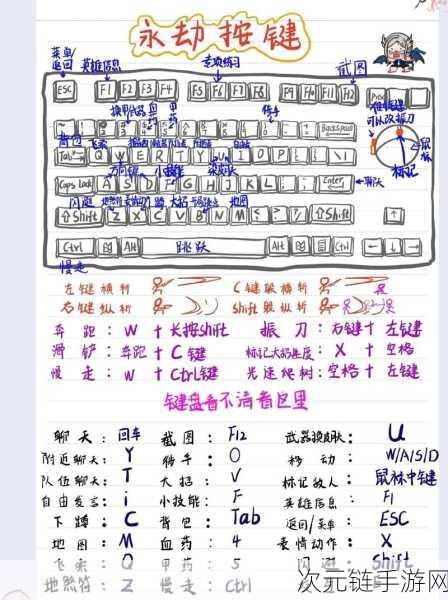 永劫按键
菜单/返回 英雄信息 专项练习 截图
ESC F1 F2 F3 F4 F5 F6 F7 F8 F9 F10 F11 F12
Backspace
背包 飞索
Tab Q W E R T Y U I O P
小技能
Caps Lock A S D F G H J K L Enter 聊天
闪避 地煞符 大招 地图
Shift Z X C V B N M Shift
Ctrl Alt 跳跃 Alt Ctrl
慢走
可以改振刀
标记
鼠标
左键横斩 C键蹲横斩
右键纵斩 shift蹲纵斩
奔跑:W+长按shift 振刀:右键+左键
滑铲:奔跑+C键 标记大招进度:X+空格
慢走:W+Ctrl键 光速爬树:空格+左键
键盘看不清看这里
聊天:回车 截图:F12 武器换皮肤:U
附近聊天:Y 躺手:O 移动:W/A/S/D
队伍聊天:T 大招:V 标记敌人:鼠标中键
自由发言:i 小技能:F 英雄信息:F1
下蹲:C 背包:Tab 返回/菜单:ESC
地图:M 血药:4 表情动作:X
飞索:Q 甲药:5 闪避:Shift
地煞符:Z 慢走:Ctrl
次元链手游网